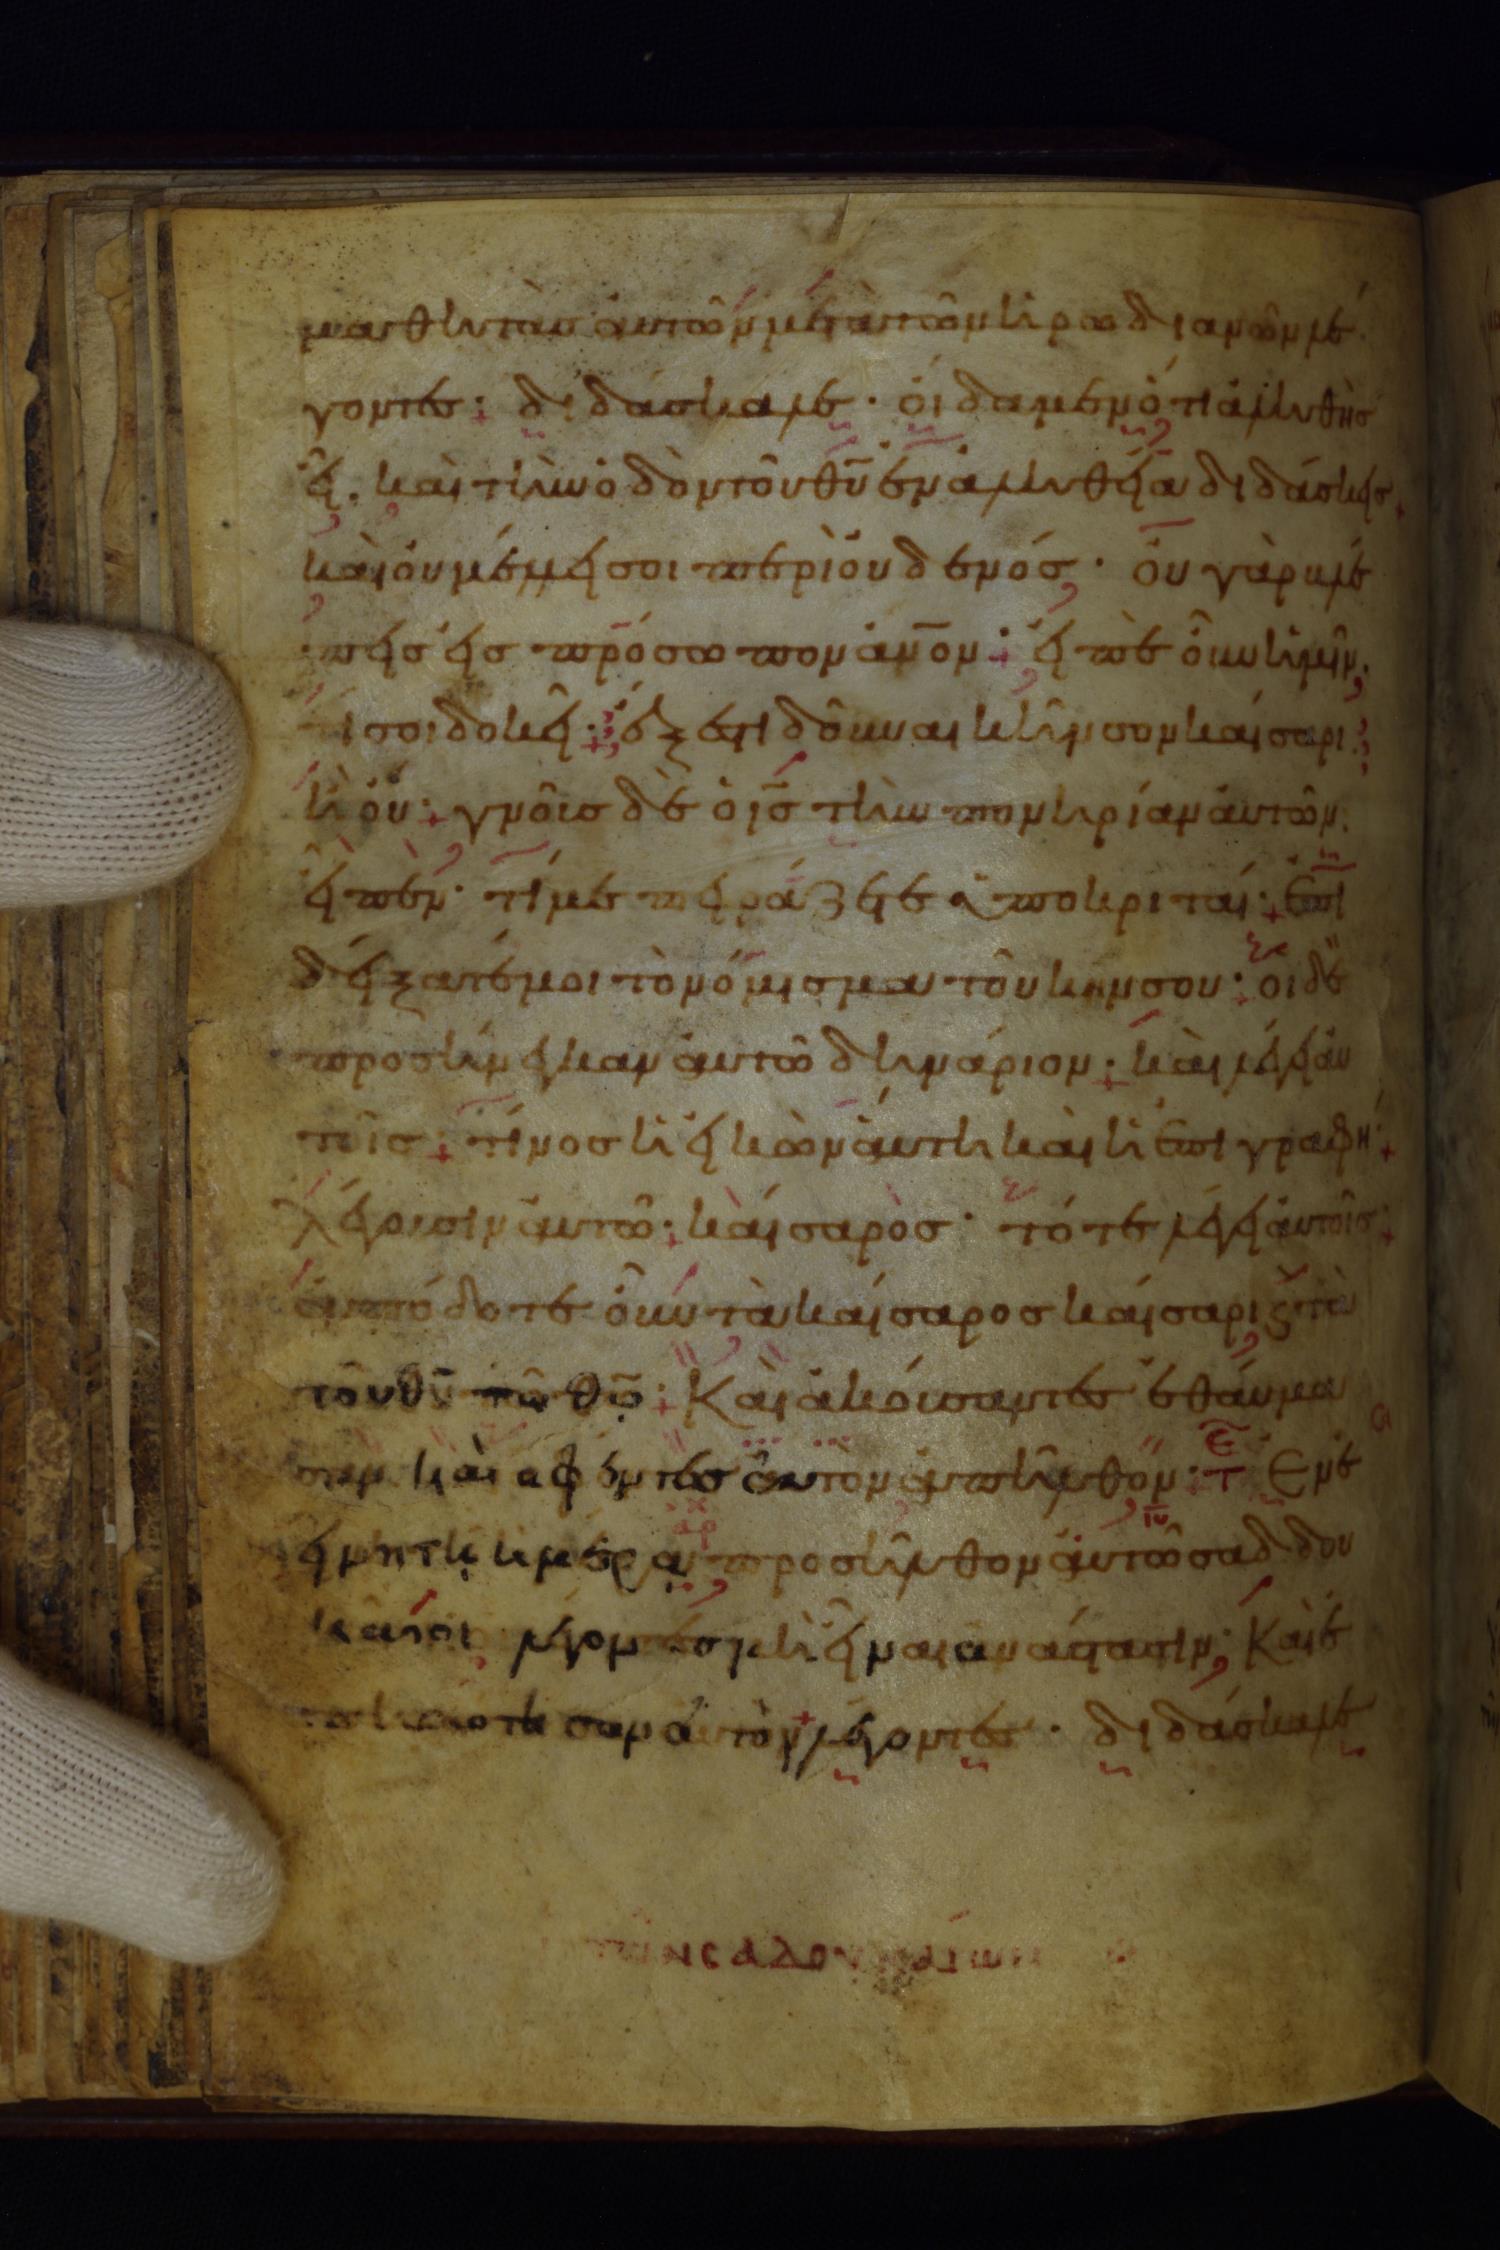 μαθητὰσ ἀυτῶν μετὰ τῶν ἡρωδιανῶν λέ
γοντεσ· διδάσκαλε· οἴδαμεν ὅτι ἀληθὴσ
εἶ. καὶ τὴν ὁδὸν τοῦ θῦ ἐν ἀληθεία διδάσκεισ
καὶ ὀυ μέλλει σοι περὶ ὀυδενόσ· ὀυ γὰρ βλέ
πεισ εἰσ πρόσωπον ἀνον· εἰπὲ ὀῦν ἡμῖν.
τί σοι δοκεῖ· ἔξεστι δοῦναι κῆνσον καίσαρι
ἢ ὀύ· γνοὺσ δὲ ὁ ισ τὴν πονηρίαν ἀυτῶν
εἶπεν· τί με πειράζετε ὑποκριταί· ἐπι
δείξατέ μοι τὸ νόμισμα τοῦ κήνσου· οἱ δὲ
προσήνεγκαν ἀυτῶ δηνάριον· καὶ λέγει ἀυ
τοῖσ· τίνοσ ἡ εἰκὼν ἀύτη καὶ ἡ ἐπιγραφή·
λέγουσιν ἀυτῶ· καίσαροσ· τότε λέγει ἀυτοῖσ·
ἀπόδοτε ὀῦν τὰ καίσαροσ καίσαρι ϗ τὰ
τοῦ θῦ τῶ θῶ· Καὶ ἀκούσαντεσ ἐθάυμα
σαν καὶ ἀφέντεσ ἀυτὸν ἀπῆλθον· τε Ἐν ἐ
κείνη τῆ ἡμέρα προσῆλθον ἀυτῶ σαδδου
καῖοι λέγοντεσ μὴ εἶναι ἀνάστασιν· Καὶ ἐ
πηρώτησαν ἀυτὸν λέγοντεσ· διδάσκαλε
τῶν σαδουκαίων